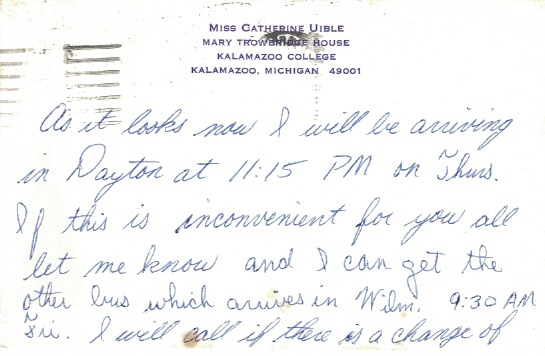 MISS CATHERINE UIBLE
MARY TROWBRIDGE HOUSE
KALAMAZOO COLLEGE
KALAMAZOO, MICHIGAN 49001
As it looks now I will be arriving
in Dayton at 11:15 PM on Thurs.
If this is inconvenient for you all
let me know and I can get the
other bus which arrives in Wilm. 9:30 AM
Fri. I will call if there is a change of